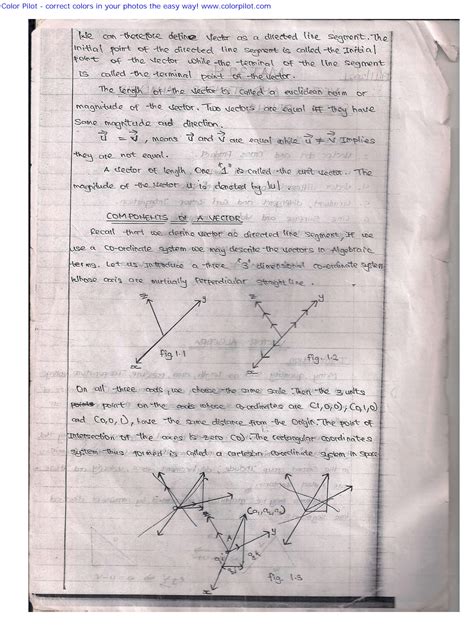 Color Pilot - correct colors in your photos the easy way! www.colorpilot.com
We can therefore define vector as a directed line segment. The
initial point of the directed line segment is called the initial
point of the vector while the terminal of the line segment
is called the terminal point of the vector.
The length of the vector is called a euclidean norm or
magnitude of the vector. Two vectors are equal iff they have
same magnitude and direction.
u = v, means u and v are equal while u ≠ v implies
they are not equal.
A vector of length One "1" is called the unit vector. The
magnitude of the vector u is denoted by |u|
COMPONENTS OF A VECTOR
Recall that we define vector as directed line segment. If we
use a co-ordinate system we may describe the vectors in Algebraic
terms. Let us introduce a three "3" dimensional co-ordinate system
whose axis are mutually Perpendicular straight line.
z y z y
Fig 1.1 Fig. 1.2
x x
On all three axis, we choose the same scale. Then the 3 units
point on the axis whose co-ordinates are (1,0,0), (0,1,0)
and (0,0,1), have the same distance from the Origin. The point of
intersection of the axes is zero (0). The rectangular coordinates
system thus formed is called a cartesian coordinate system in space
z (a₁, a₂, a₃)
A y
x fig. 1.3